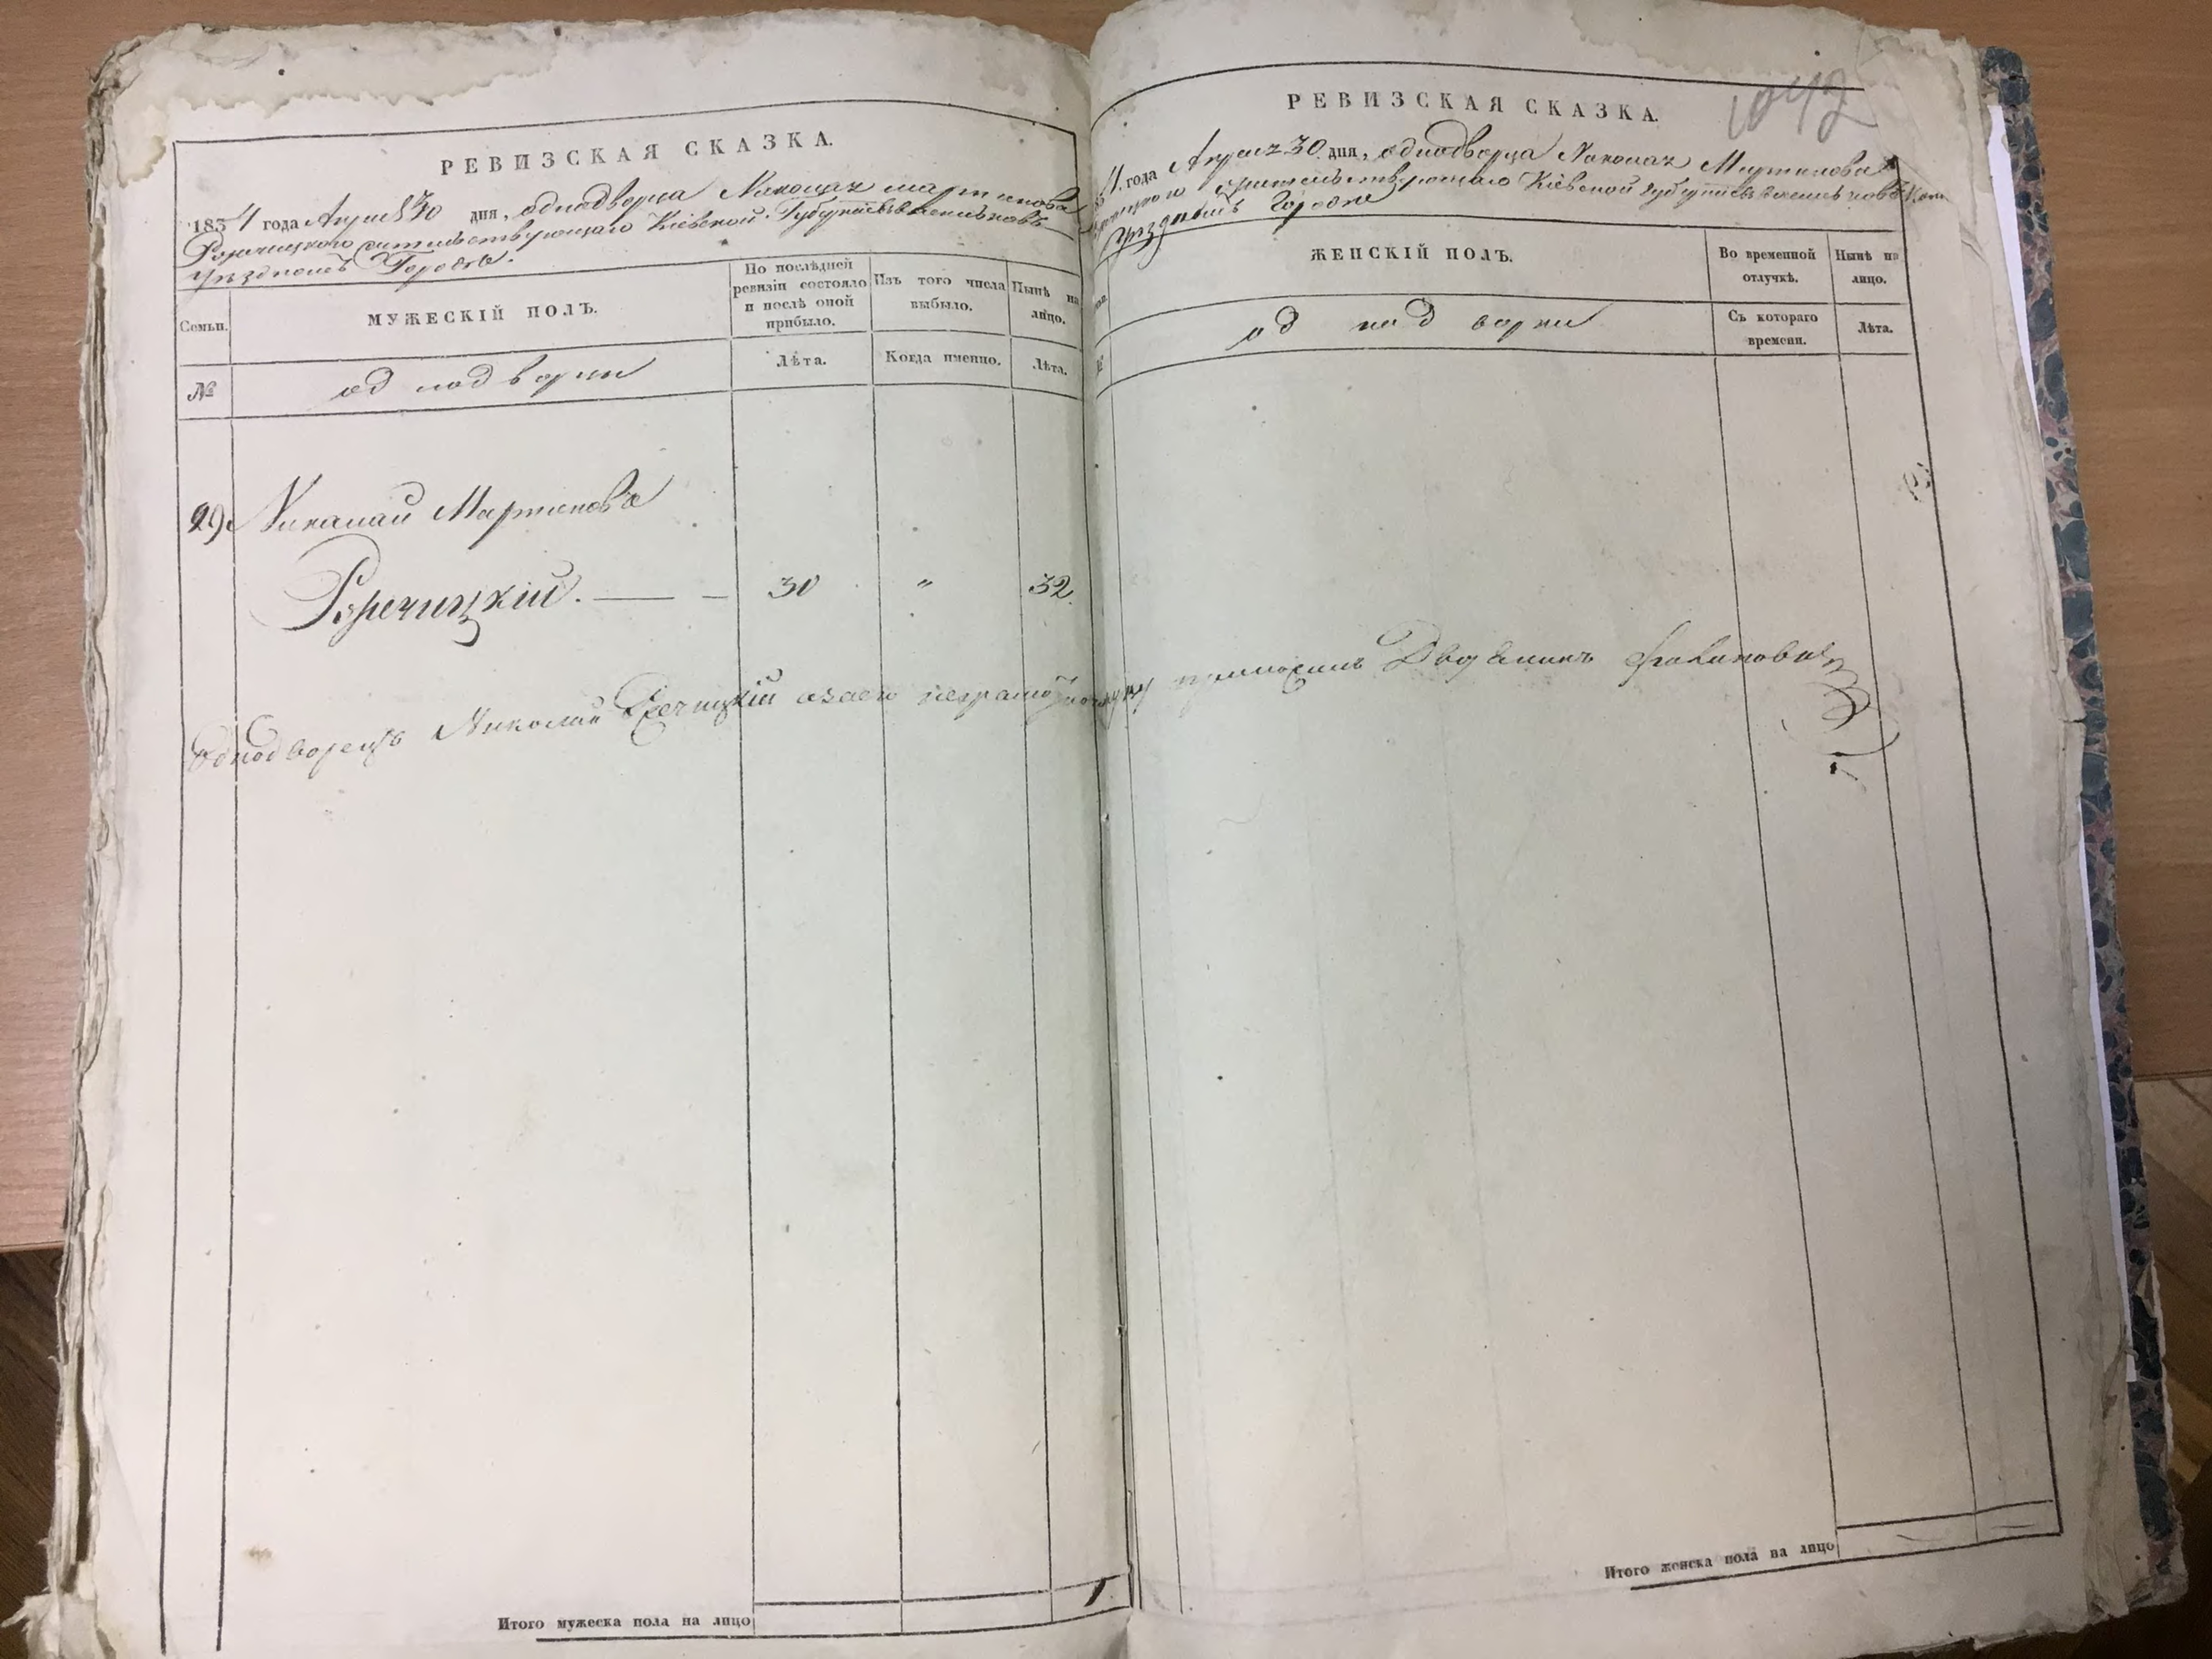 РЕВИЗСКАЯ СКАЗКА.
1834 года Апреля 30 дня, однодворца Николая мартинова
жительствующаго Кіевской Губерніи въ
уѣздномъ Городѣ.
Семьи.
МУЖЕСКІЙ ПОЛЪ.
По послѣдней ревизіи состояло и послѣ оной прибыло.
Изъ того числа выбыло.
Нынѣ на лицо.
№
однодворцы
Лѣта.
Когда именно.
Лѣта.
29. Николай Мартиновъ
Рѣчицкій. 30 " 32.
Однодворецъ Николай Речицкій а заего неграмотного руку приложилъ Дворянинъ
Итого мужеска пола на лицо
1
1042
РЕВИЗСКАЯ СКАЗКА.
года Апреля 30 дня, однодворца Николая Мартинова
жительствующаго Кіевской губерніи
уѣздномъ Городѣ
ЖЕНСКІЙ ПОЛЪ.
Во временной отлучкѣ.
Нынѣ на лицо.
однодворки
Съ котораго времени.
Лѣта.
Итого женска пола на лицо